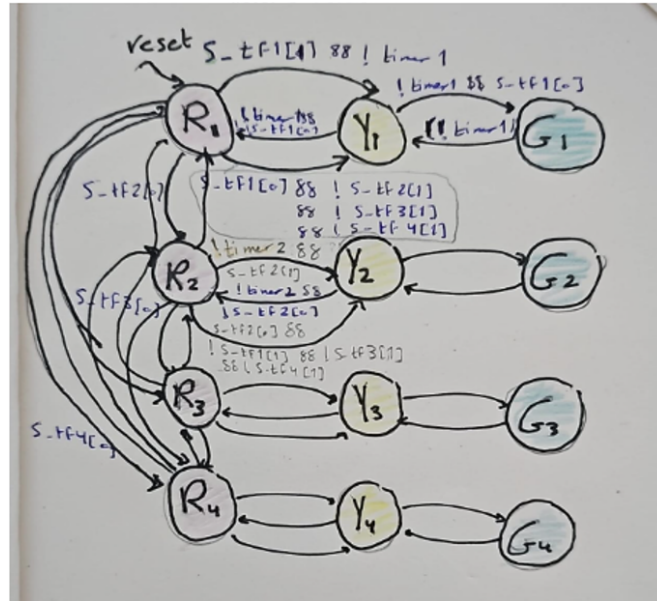 reset S_tf1[1] && ! timer1
! timer1 && S_tf1[0]
R1
! timer1 &&
! S_tf1[0]
Y1
(! timer1)
G1
S_tf2[0]
S_tf1[0] && ! S_tf2[1]
&& ! S_tf3[1]
&& ! S_tf4[1]
! timer2 &&
R2
S_tf2[1]
Y2
G2
! timer2 &&
! S_tf2[0]
S_tf3[0]
S_tf2[0] &&
! S_tf1[1] && ! S_tf3[1]
&& ! S_tf4[1]
R3
Y3
G3
S_tf4[0]
R4
Y4
G4